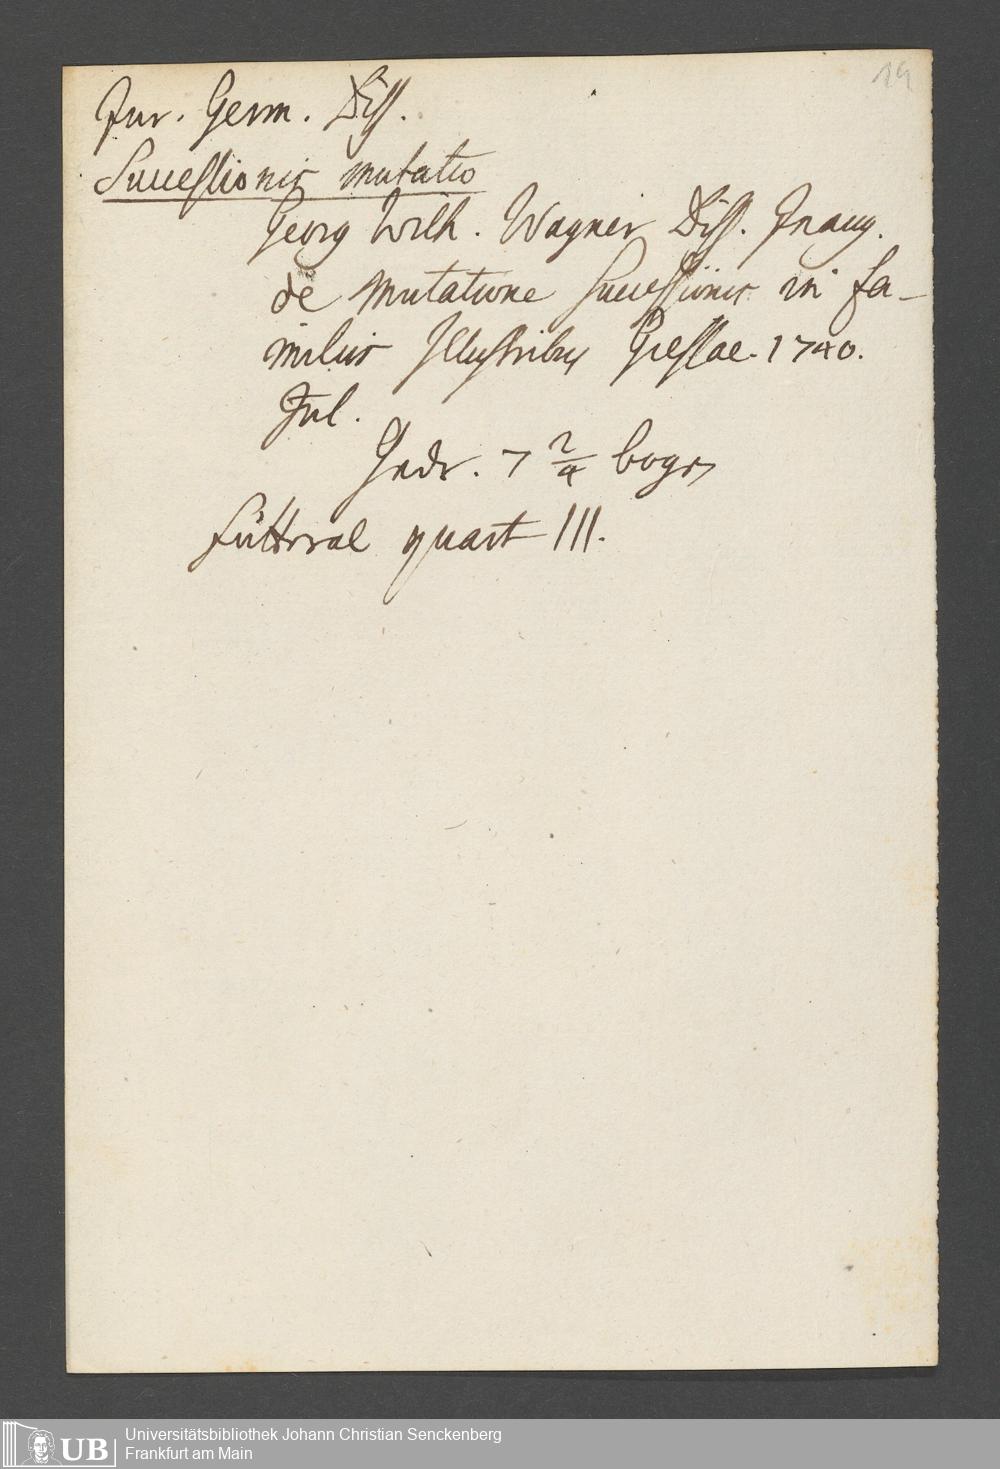 19
Jur. Germ. Diss.
Successionis mutatio
Georg Wilh. Wagner Diss. Inaug.
de Mutatione Successionis in fa-
miliis Illustribus Giessae. 1740.
Jul.
Gedr. 7 2/4 bogen
Futteral quart III.
UB Universitätsbibliothek Johann Christian Senckenberg
Frankfurt am Main